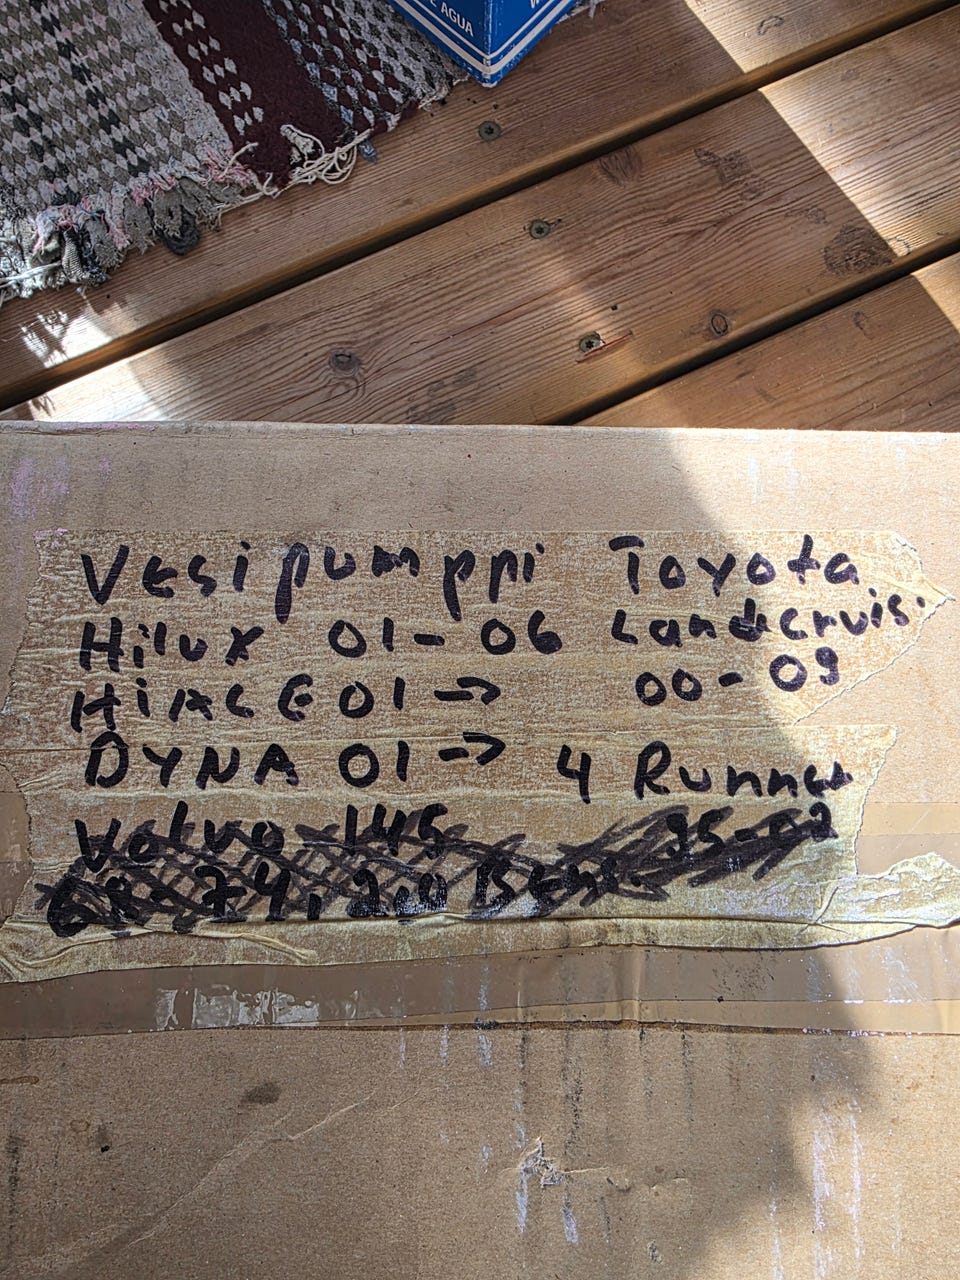 E AGUA
Vesipumppi Toyota
Hilux 01-06 Landcruis.
HiACE 01→ 00-09
DYNA 01→ 4 Runner
Volvo 145 95-02
68-74, 2,0 Bens.